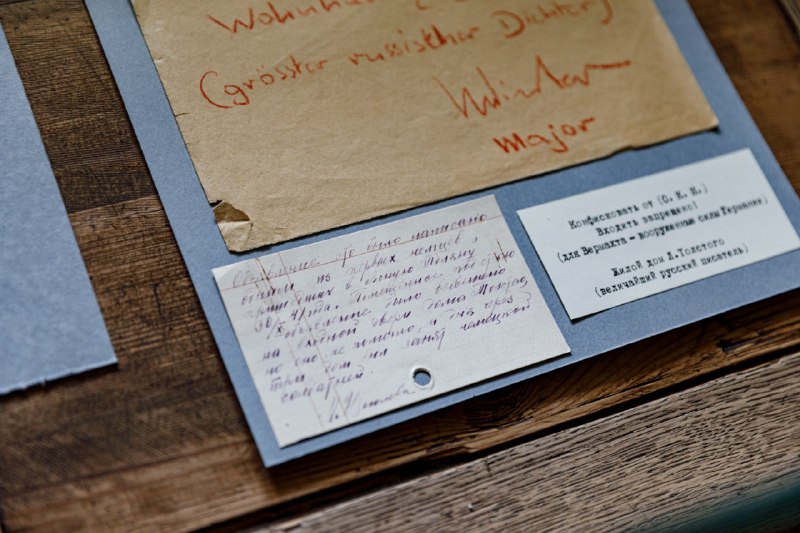 Wohnhau
(grösster russischer Dichter)
Major
Объявление это было написано
одним из первых немцев,
пришедших в Ясную Поляну
30/X 41 года.
объявление было повешено
на входной двери дома Толстого,
но оно не помогло, и дня через
три дом был занят немецкой
солдатней.
Конфисковать от (О. К. Н.)
Входить запрещено!
(для Вермахта – вооруженные силы Германии)
Жилой дом Л.Толстого
(величайший русский писатель)